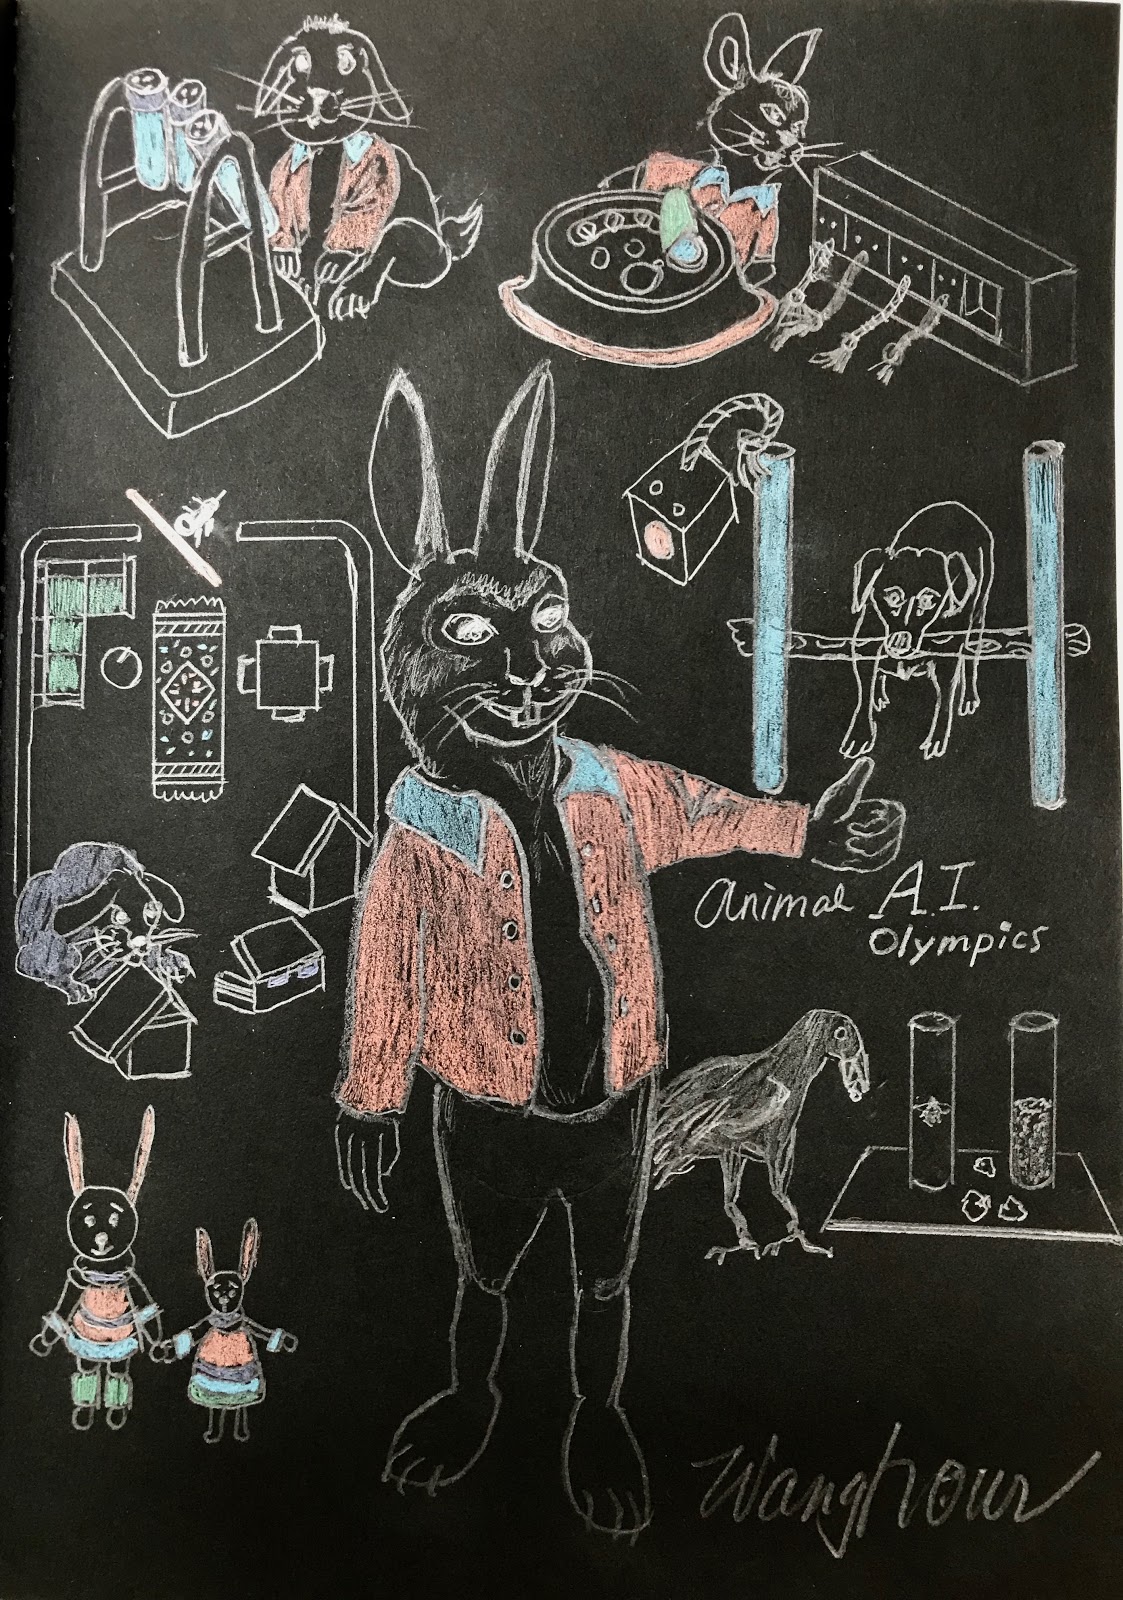 animal A.I.
Olympics
Wanghour